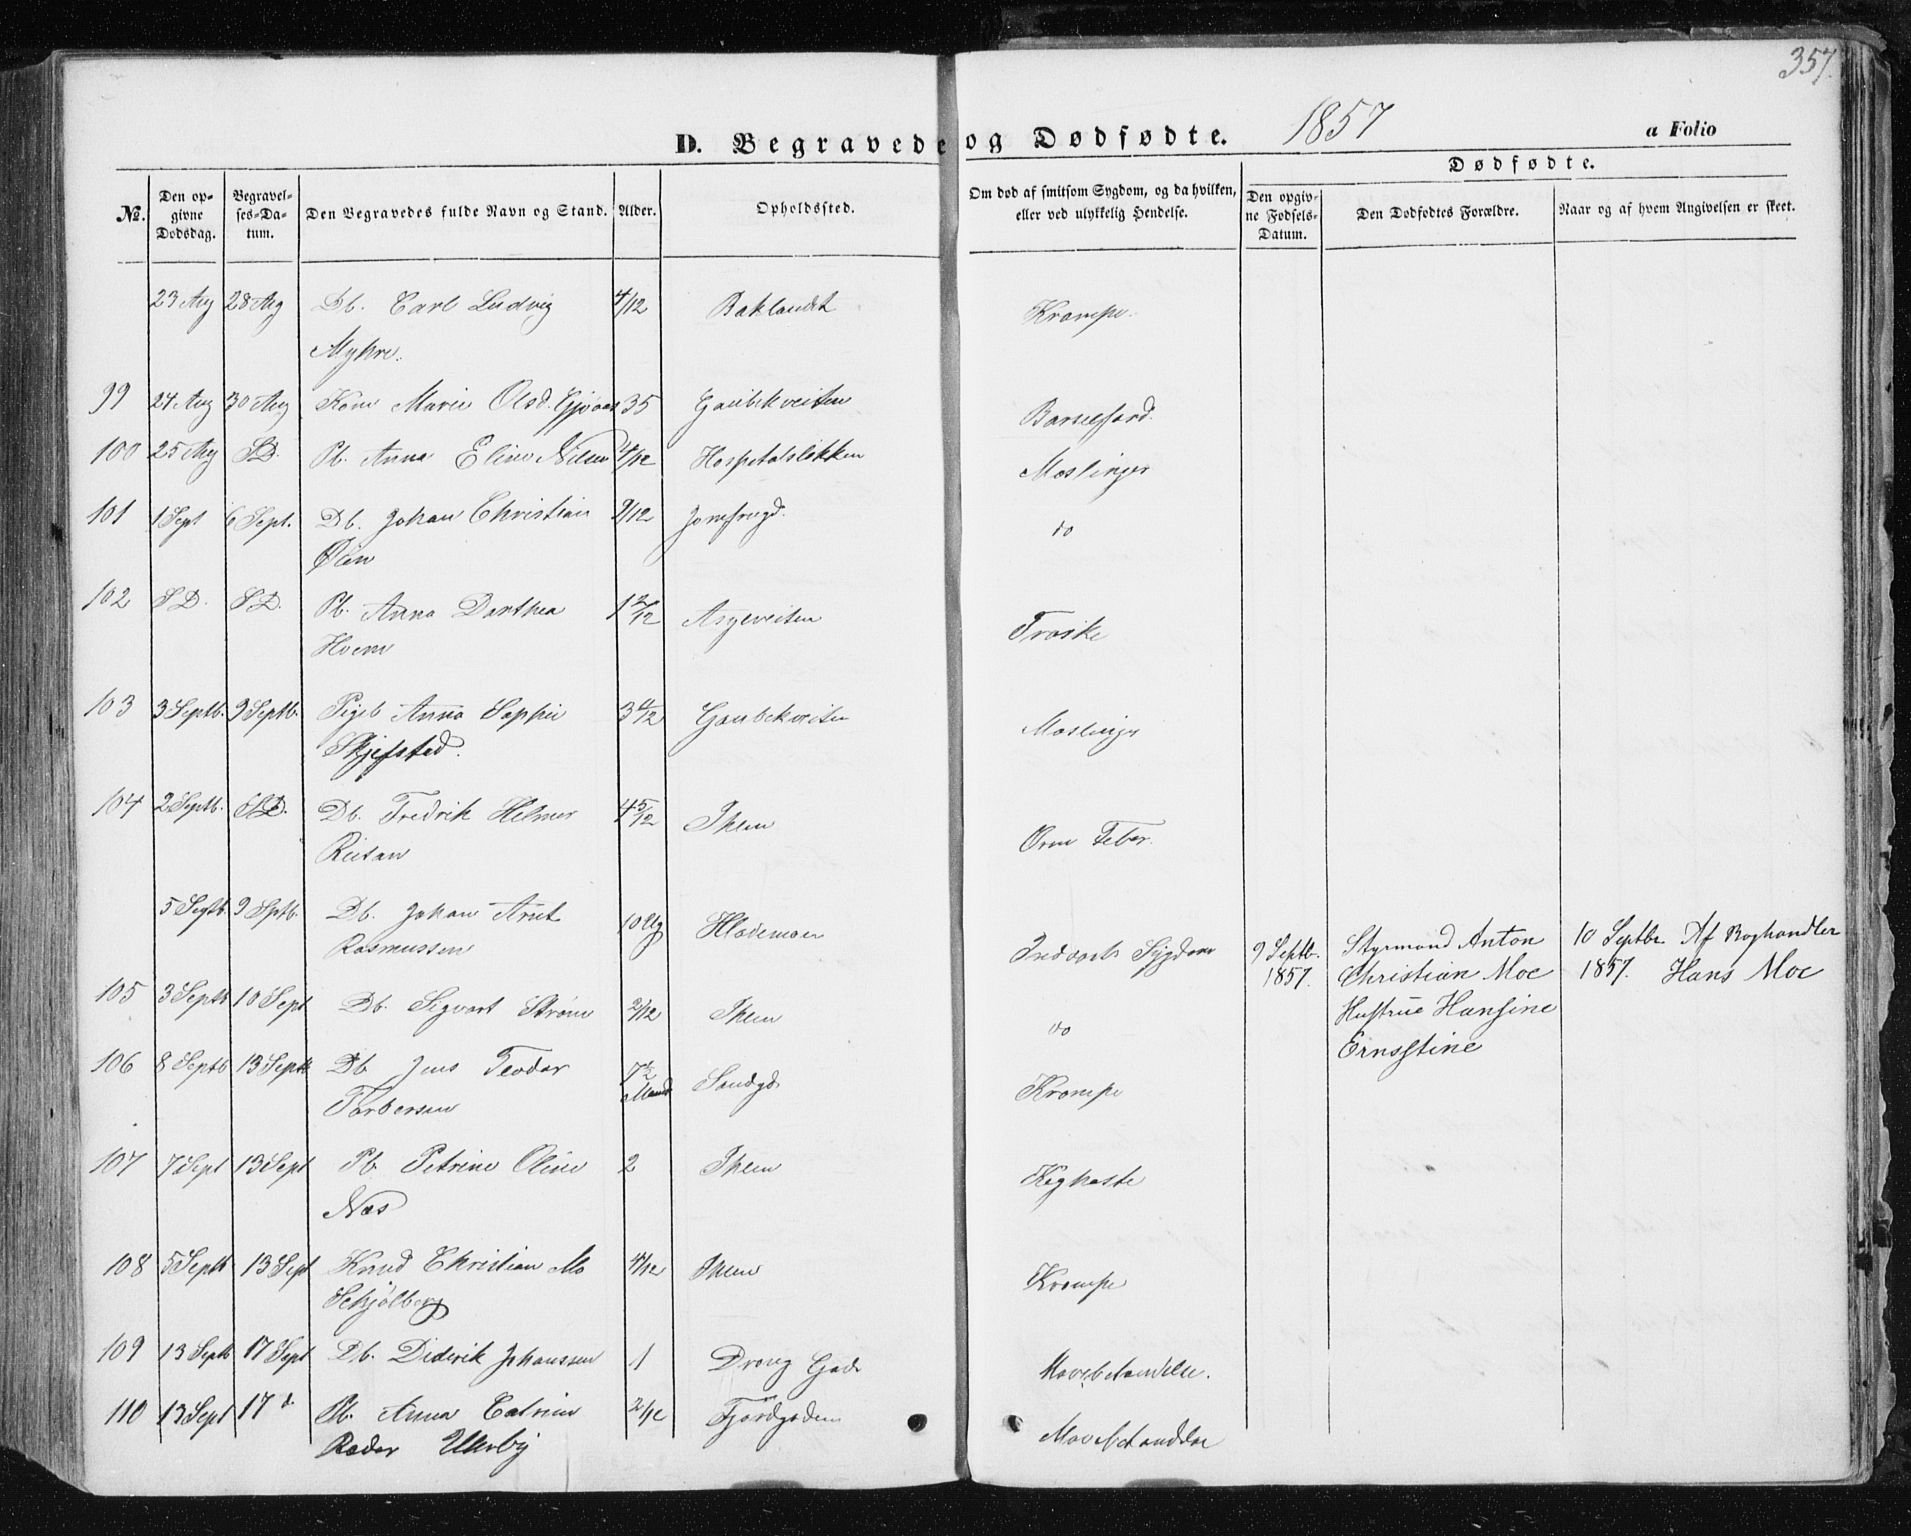 357.
D. Begravede og Dødfødte. 1857 a Folio
Dødfødte.
No.
Den opgivne Dødsdag.
Begravelses-Datum.
Den Begravedes fulde Navn og Stand.
Alder.
Opholdssted.
Om død af smitsom Sygdom, og da hvilken, eller ved ulykkelig Hendelse.
Den opgivne Fødsels-Datum.
Den Dødfødtes Forældre.
Naar og af hvem Angivelsen er skeet.
23 Aug 28 Aug Db. Carl Ludvig 4/12 Baklandet Krampe.
Myhre.
99 24 Aug 30 Aug Kone Marie Olsd. 35 Gaubekveiten Barselfærd.
100 25 Aug S.D. Pb. Anna Eline Nilsen 4/12 Hospetalsløkken Mæslinger
101 1 Sept 6 Sept. Db. Johan Christian 9/12 Jomfrugd. do
Øien
102 S D. S D. Pb. Anna Darthea 1 2/12 Arileveiten Træske
Hoem
103 3 Septb. 9 Septb. Pigeb Anna Sophie 3 4/12 Gaubekveiten Mæslinger
Skjefsted.
104 2 Septb. S.D. Db. Fredrik Helmer 4 5/12 Ihlen Orm Feber.
Reitan
5 Septb. 9 Septb. Db. Johan Arnt 10 Ug Hlademoen Indvorts Sygdom
Rasmussen
9 Septb. 1857.
Styrmand Anton
Christian Moe
Hustrue Hansine
Ernsstine
10 Septbr. Af Boghandler
1857. Hans Moe
105 3 Septb 10 Sept Db. Sigvart Strøm 2/12 Ihlen do
106 8 Septb 13 Septb Db Jens Teodor 7½ Mand Sandgd. Krampe
Torbersen
107 7 Sept 13 Sept Pb. Petrine Oline 2 Ihlen Kighoste
Næs
108 5 Septb 13 Sept Knud Christian Mo 4/12 Ihlen Krampe
Schjølberg
109 13 Septb 17 Sept Db. Diderik Johanssen 1 Drong Gade Mavebetændelse.
110 13 Sept 17 d Pb. Anna Catrine 2/12 Fjordgaden Mavebetændelse
Roder Ukerby